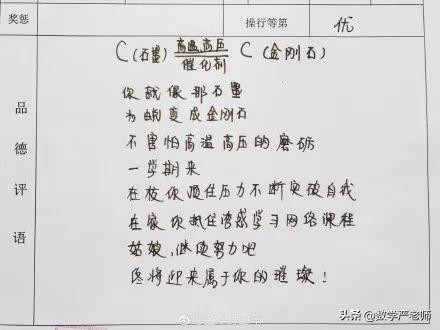 奖惩 操行等第 优
品德评语
C(石墨) 高温、高压 催化剂 C(金刚石)
你就像那石墨
为蜕变成金刚石
不害怕高温高压的磨砺
一学期来
在校你顶住压力不断突破自我
在家你抵住诱惑学习网络课程
姑娘,继续努力吧
终将迎来属于你的璀璨!
头条@数学严老师